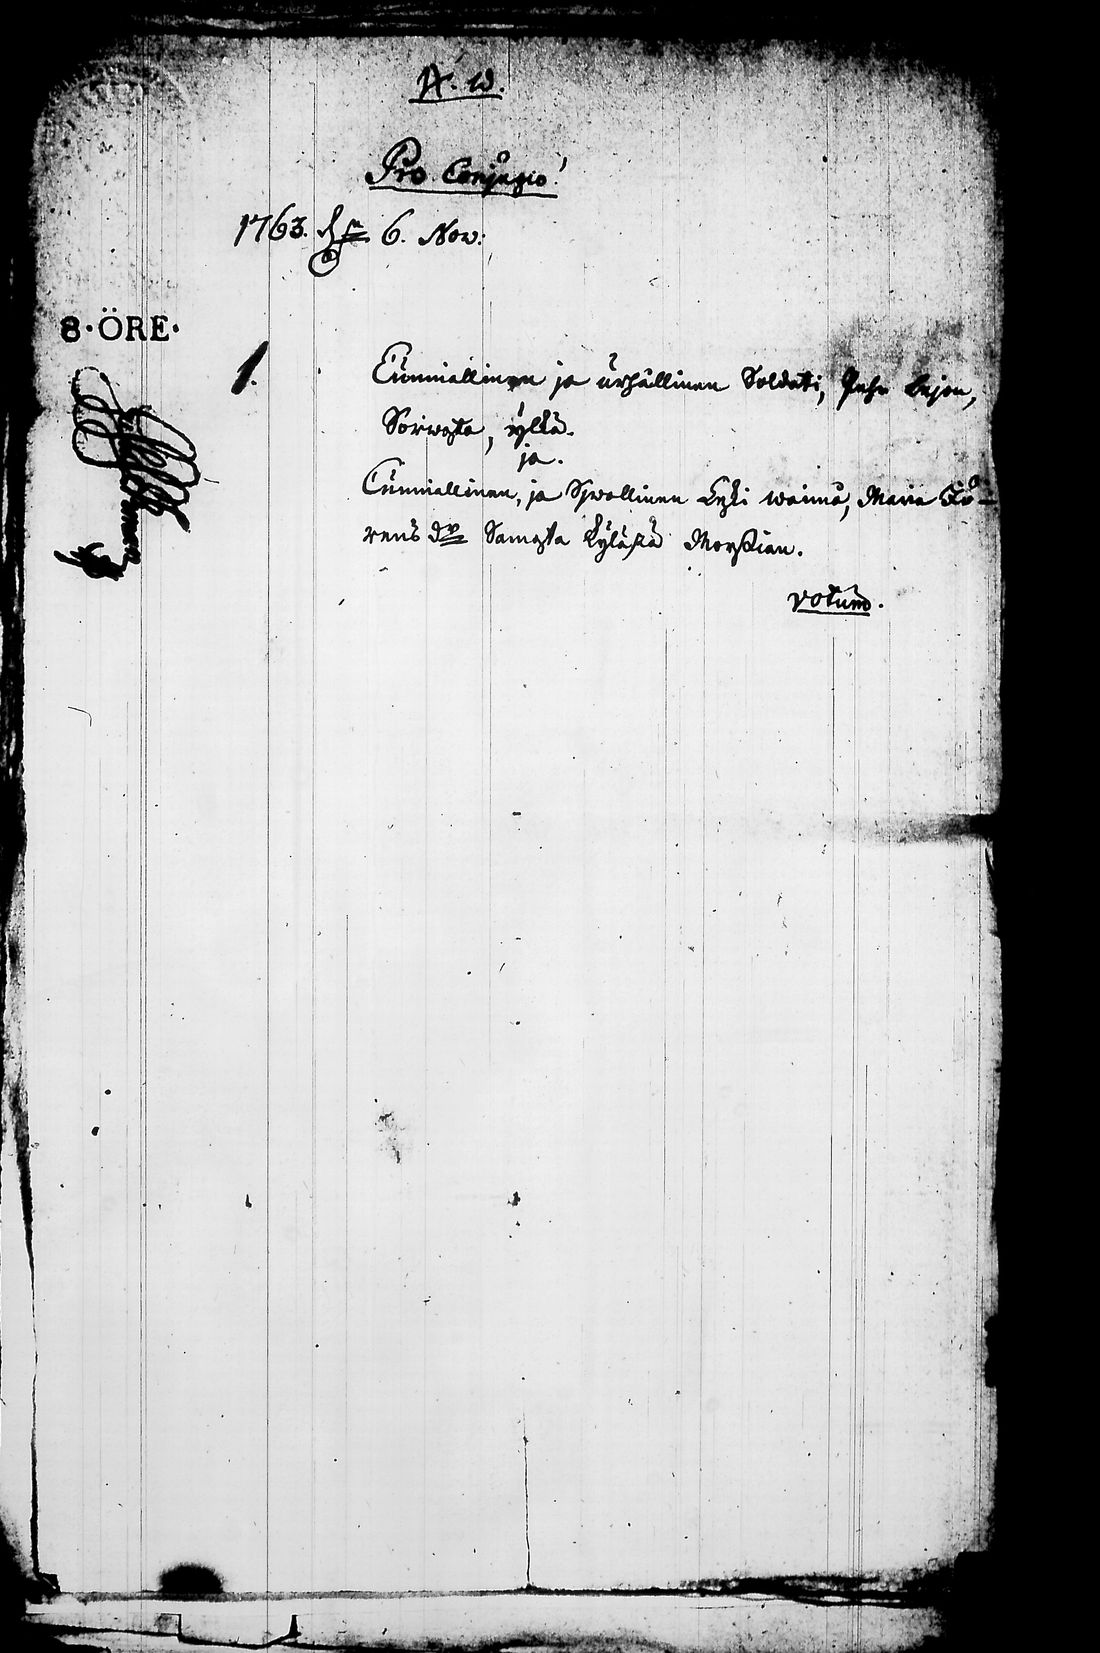 N: 10.
Pro Conjugio!
1763. d 6. Nov:
8·ÖRE·
1. Cunniallinen ja urhållinen Soldati, Pehr Lejon,
Sorwasta, ylkä.
ja.
Cunniallinen, ja Sjwollinen Leski waimo, Maria Jö-
rens dr Samasta Kylästä Morsian.
votum.